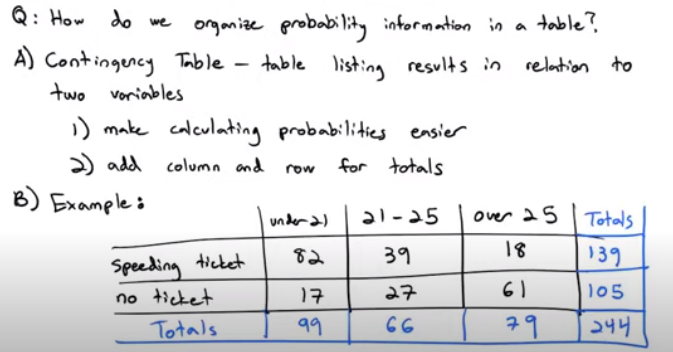 Q: How do we organize probability information in a table?
A) Contingency Table - table listing results in relation to
two variables
1) make calculating probabilities easier
2) add column and row for totals
B) Example:
under 21 21-25 over 25 Totals
speeding ticket 82 39 18 139
no ticket 17 27 61 105
Totals 99 66 79 244